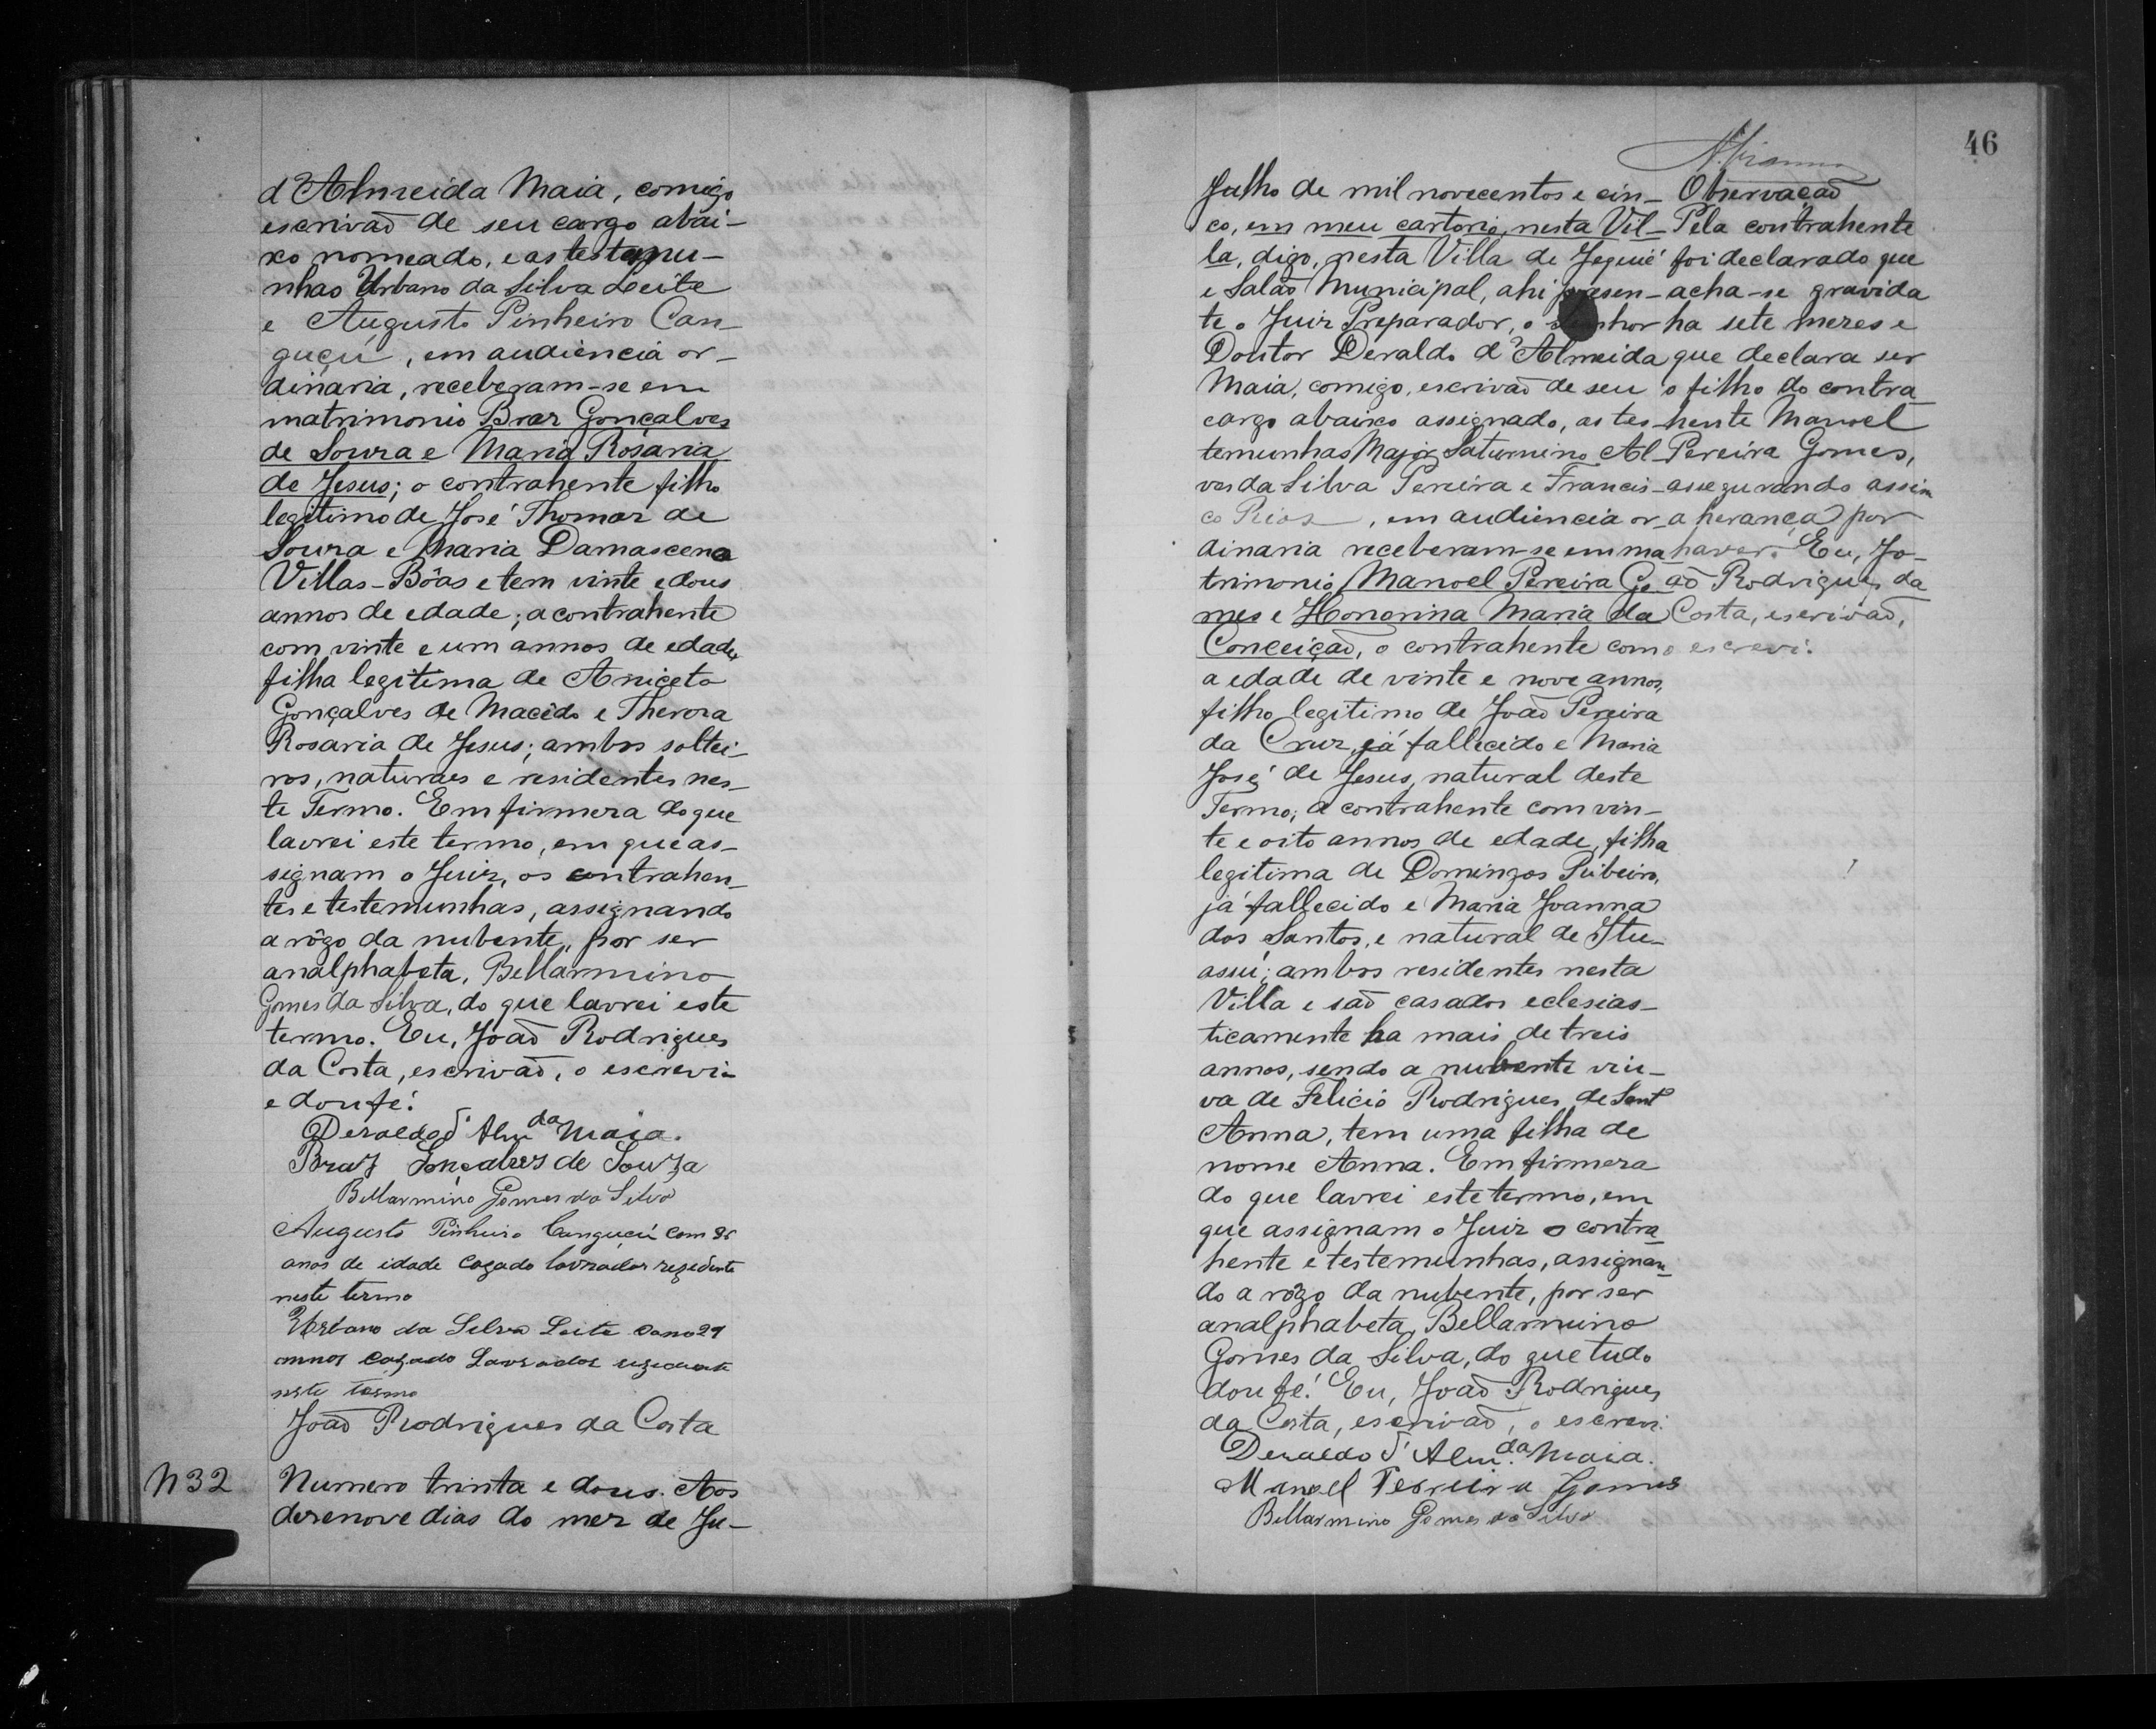 d'Almeida Maia, comigo
escrivaõ de seu cargo abai-
xo nomeado, e as testemu-
nhas Urbano da Silva Leite
e Augusto Pinheiro Can-
guçú, em audiencia or-
dinaria, receberam-se em
matrimonio Braz Gonçalves
de Souza e Maria Rosaria
de Jesus; o contrahente filho
legitimo de José Thomaz de
Souza e Maria Damascena
Villas-Bôas e tem vinte e dous
annos de edade; a contrahente
com vinte e um annos de edade,
filha legitima de Aniceto
Gonçalves de Macêdo e Thereza
Rosaria de Jesus; ambos soltei-
ros, naturaes e residentes nes-
te Termo. Em firmeza do que
lavrei este termo, em que as-
signam o Juiz, os contrahen-
tes e testemunhas, assignando
a rôgo da nubente, por ser
analphabeta, Bellarmino
Gomes da Silva, do que lavrei este
termo. Eu, Joaõ Rodrigues
da Costa, escrivaõ, o escrevi
e dou fé.
Deraldo d'Alm.da Maia.
Braz Gonçalves de Souza
Bellarmino Gomes da Silva
Augusto Pinheiro Canguçú com 36
anos de idade cazado lavrador rezidente
neste termo
Urbano da Silva Leite com 29
annos cazado Lavrador rezidente
neste termo
Joaõ Rodrigues da Costa
N 32 Numero trinta e dous. Aos
dezenove dias do mez de Ju-
46
Julho de mil novecentos e cin-
co, em meu cartorio, nesta Vil-
la, digo, nesta Villa de Jequié
e Salaõ Municipal, ahi presen-
te o Juiz Preparador, o Senhor
Doutor Deraldo d'Almeida
Maia, comigo, escrivaõ de seu
cargo abaixo assignado, as tes-
temunhas Major Saturnino Al-
ves da Silva Pereira e Francis-
co Rios, em audiencia or-
dinaria receberam-se em ma-
trimonio Manoel Pereira Go-
mes e Honorina Maria da
Conceiçaõ, o contrahente com
a edade de vinte e nove annos,
filho legitimo de Joaõ Pereira
da Cruz, já fallecido e Maria
José de Jesus, natural deste
Termo; a contrahente com vin-
te e oito annos de edade, filha
legitima de Domingos Ribeiro,
já fallecido e Maria Joanna
dos Santos, e natural de Itu-
assú; ambos residentes nesta
Villa e saõ casados eclesias-
ticamente ha mais de treis
annos, sendo a nubente viu-
va de Felicio Rodrigues de Sant'
Anna, tem uma filha de
nome Anna. Em firmeza
do que lavrei este termo, em
que assignam o Juiz o contra-
hente e testemunhas, assignan-
do a rôgo da nubente, por ser
analphabeta, Bellarmino
Gomes da Silva, do que tudo
dou fé. Eu, Joaõ Rodrigues
da Costa, escrivaõ, o escrevi.
Deraldo d'Alm.da Maia.
Manoel Perreira Gomes
Bellarmino Gomes da Silva
Observaçaõ
Pela contrahente
foi declarado que
acha-se gravida
ha sete mezes e
que declara ser
o filho do contra-
hente Manoel
Pereira Gomes,
assegurando assim
a herança por
haver. Eu, Jo-
aõ Rodrigues da
Costa, escrivaõ,
o escrevi.